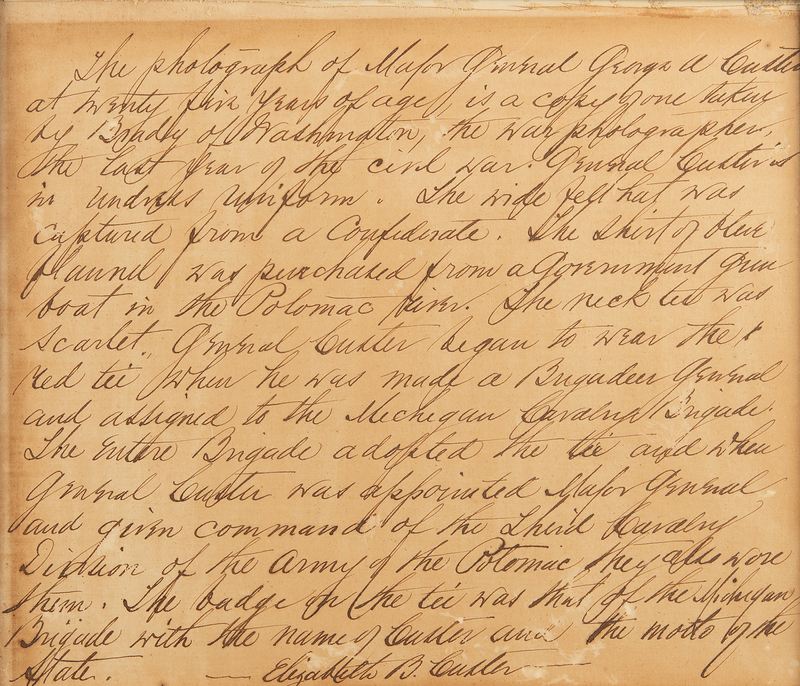 The photograph of Major General George A Custer
at twenty five years of age, is a copy of one taken
by Brady of Washington, the war photographer,
the last year of the civil war. General Custer is
in undress uniform. The wide felt hat was
captured from a Confederate. The shirt of blue
flannel was purchased from a Government gun
boat in the Potomac river. The neck tie was
scarlet. General Custer began to wear the
red tie when he was made a Brigadier General
and assigned to the Michigan Cavalry Brigade.
The entire Brigade adopted the tie and when
General Custer was appointed Major General
and given command of the Third Cavalry
Division of the Army of the Potomac they also wore
them. The badge on the tie was that of the Michigan
Brigade with the name of Custer and the motto of the
State. — Elizabeth B. Custer —